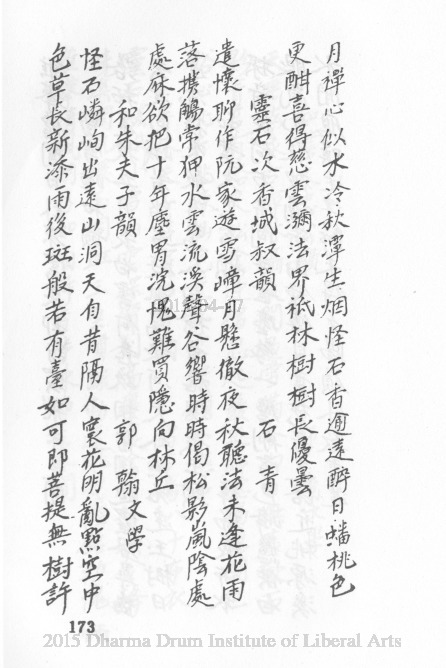 月禪心似水冷秋潭生烟怪石香逾遠醉日蟠桃色
更酣喜得慈雲瀰法界祇林樹樹長優曇
靈石次香城叔韻 石青
遣懷聊作阮家遊雪嶂月懸徹夜秋聽法未逢花雨
落攜觴常狎水雲流溪聲谷響時時偈松影嵐陰處
處麻欲把十年塵胃浣愧難買隱向林丘
和朱夫子韻 郭翰文學
怪石嶙峋出遠山洞天自昔隔人寰花明亂點空中
色草長新添雨後斑般若有臺如可即菩提無樹許
173
2015 Dharma Drum Institute of Liberal Arts